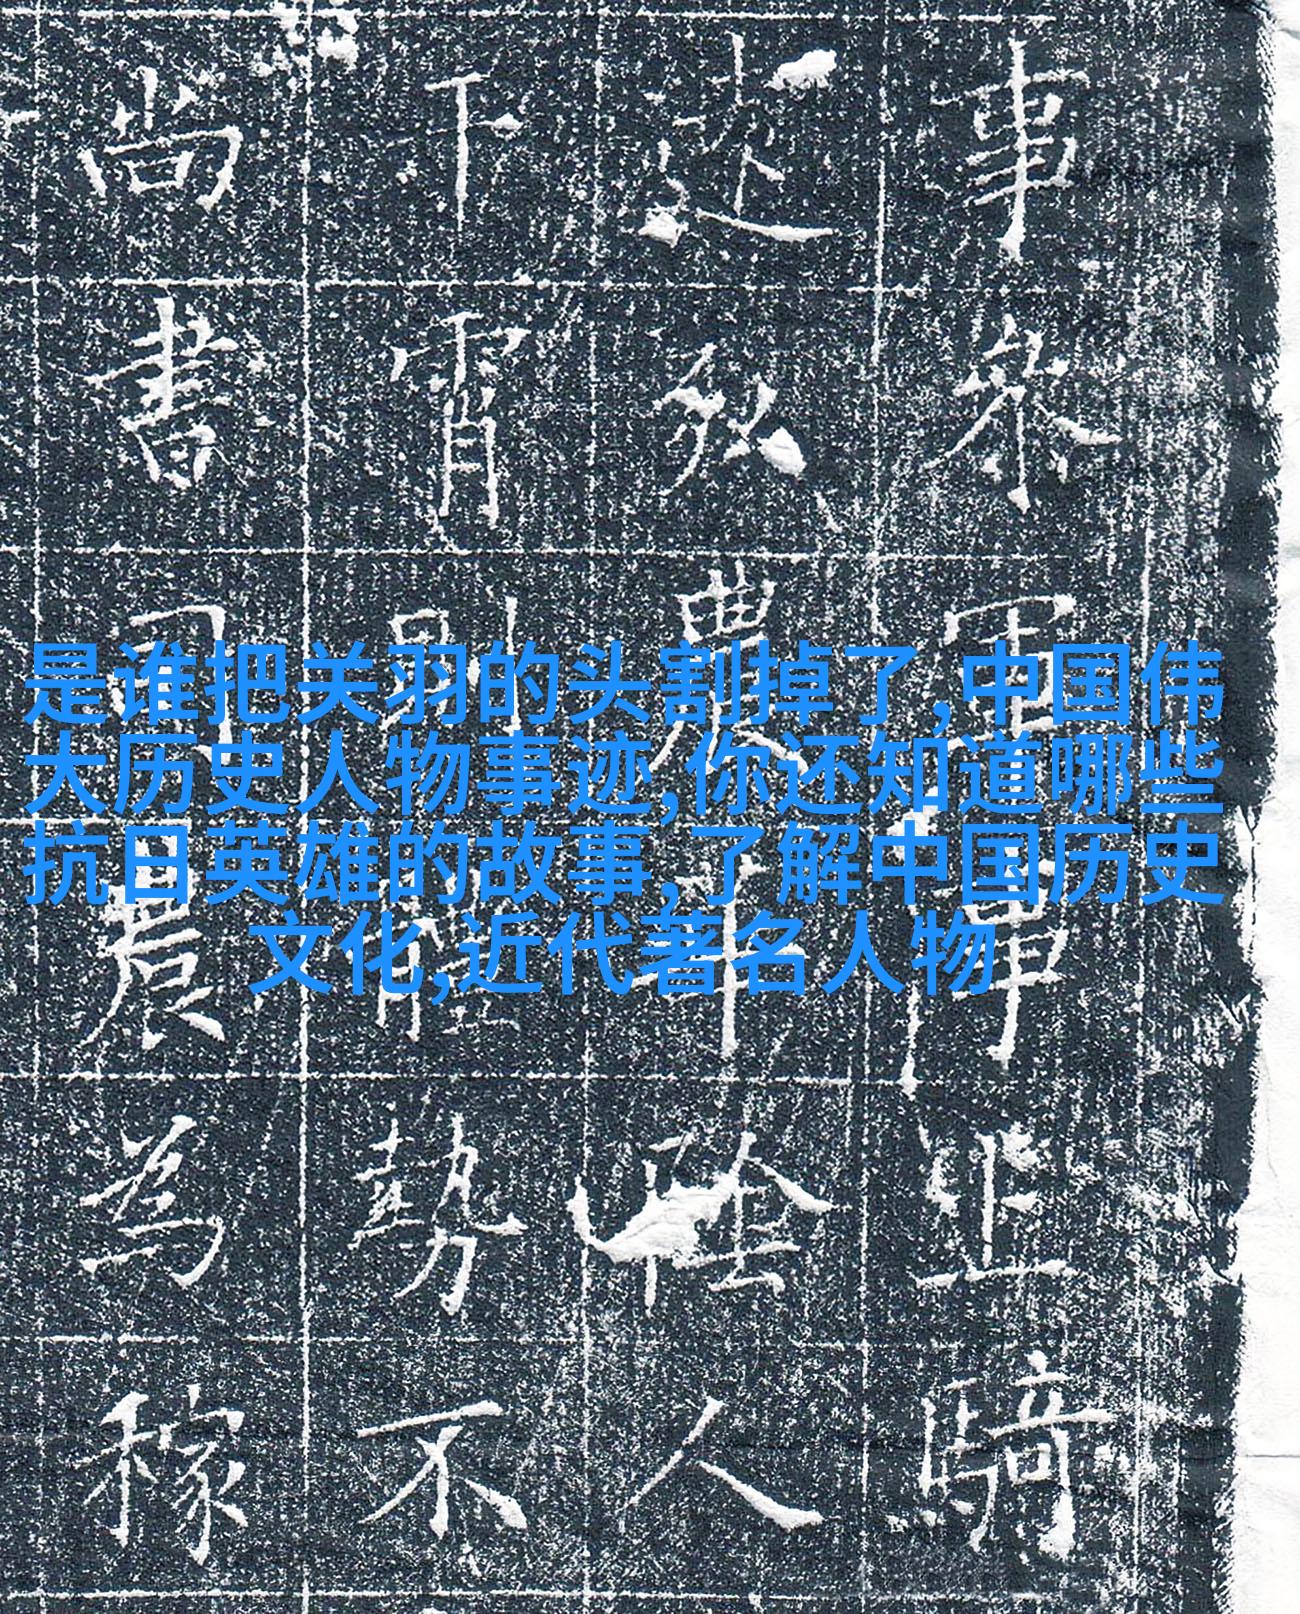 是谁把关羽的头割掉了,中国伟
大历史人物事迹,你还知道哪些
抗日英雄的故事,了解中国历史
文化,近代著名人物
事軍騎
弘農華陰人
下霄別體勢不
尚書司農為稼